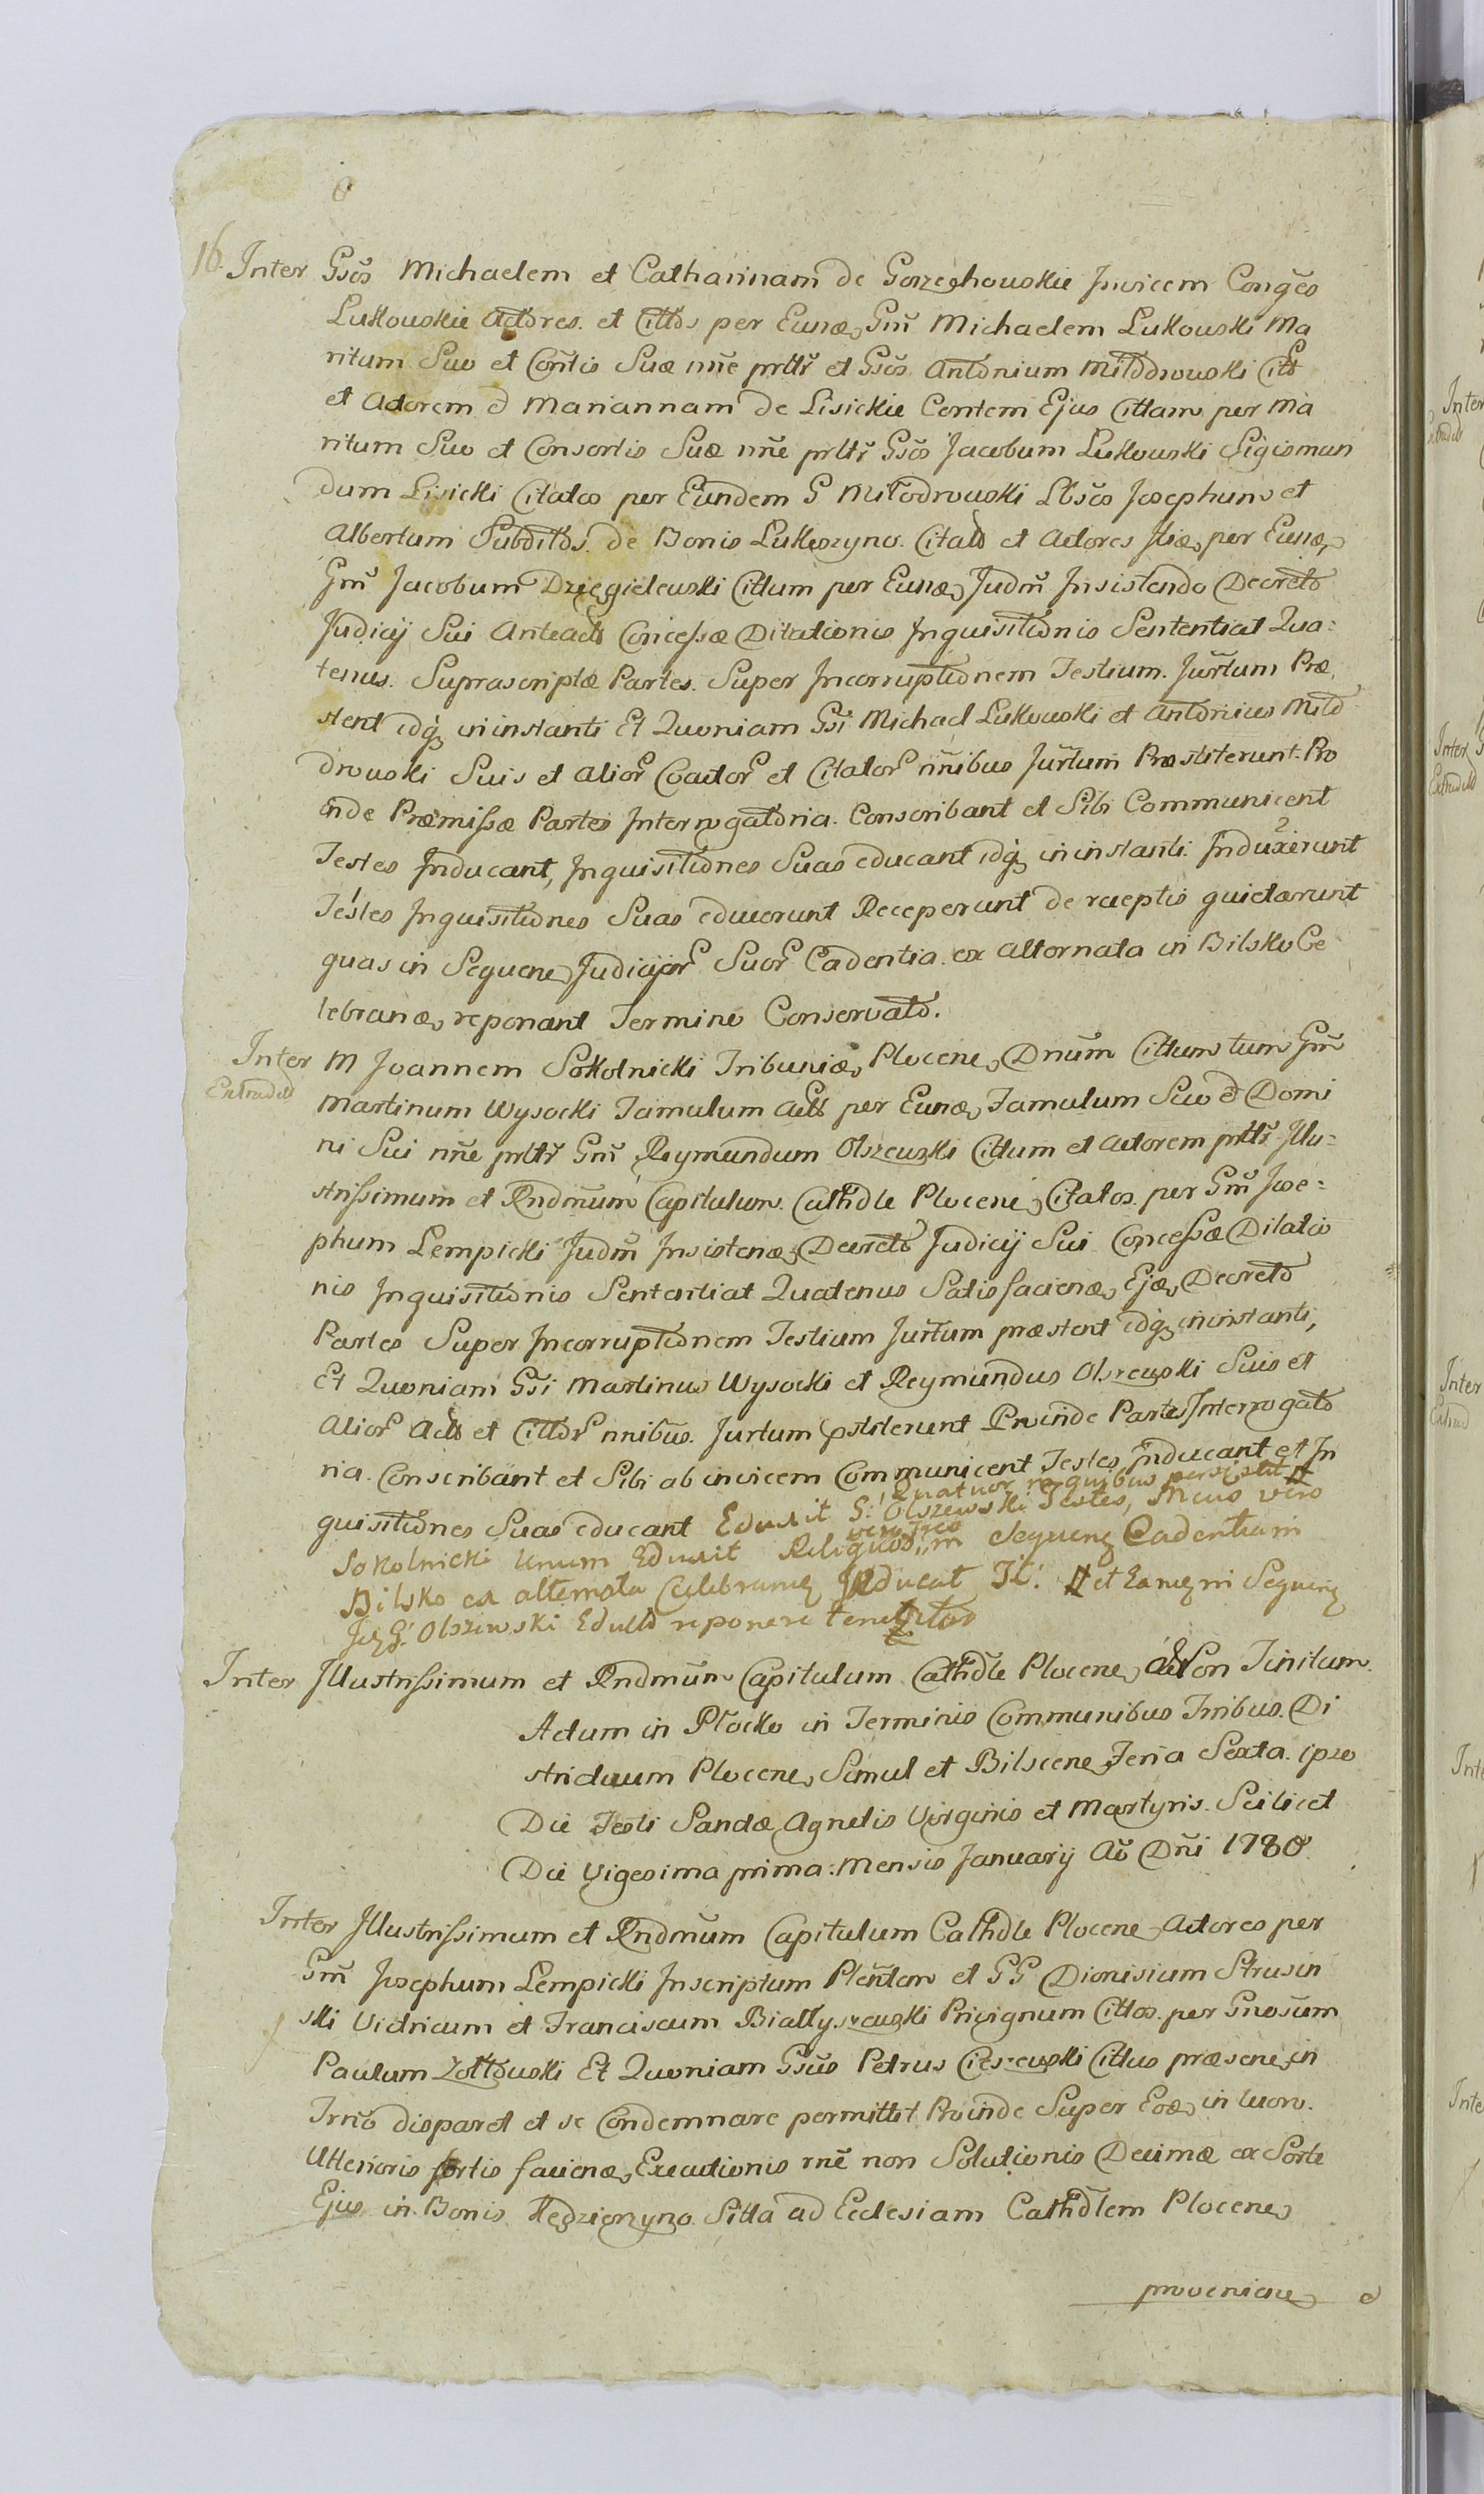 16. Inter Gsos Michaelem et Catharinam de Gorzechowskie Invicem Conges
Lukowskie Actores et Cittos per Eund, Gm Michaelem Lukowski Ma
ritum Suo et Contis Suæ nne prttr et Gsos Antonium Milodrowski Citt
et Actorem et Mariannam de Lisickie Contem Ejus Cittam per Ma
ritum Suo et Consortis Suæ nne prttr Gsos Jacobum Lukowski Sigismun
dum Lisicki Citatos per Eundem G Milodrowski Lbsos Josephum et
Albertum Subditos de Bonis Lukoszyno Citatos et Actores per Eund,
Gm Jacobum Dzięgielewski Cittum per Eund, Judm Insistendo Decreto
Judicij Sui Anteacto Concessæ Dilationis Inquisitionis Sententiat Qua=
tenus Suprascriptæ Partes Super Incorruptionem Testium Jurtum Præ
stent idq in instanti Et Quoniam Gsi Michael Lukowski et Antonius Milo
drowski Suis et Alior Coactor et Citator nnibus Jurtum Præstiterunt Pro
inde Præmissæ Partes Interrogatoria Conscribant et Sibi Communicent
Testes Inducant, Inquisitiones Suas educant idq in instanti Induxerunt
Testes Inquisitiones Suas eduxerunt Receperunt de receptis quietarunt
quas in Sequen Judicijor Suor Cadentia ex alternata in Bilsko Ce
lebrand, reponant Termino Conservato.
Inter M Joannem Sokolnicki Tribunid, Plocen, Dnum Cittum tum Gm
Extradd
Martinum Wysocki Famulum Actt per Eund, Famulum Suo et Domi
ni Sui nne prttr Gm Reymundum Olszewski Cittum et Actorem prttr Illu=
strissimum et Rndmum Capitulum Cathdle Plocen, Citatos per Gm Jose=
phum Lempicki Judm Insistend, Decreto Judicij Sui Concessæ Dilatio
nis Inquisitionis Sententiat Quatenus Satisfaciend, Ejd, Decreto
Partes Super Incorruptionem Testium Jurtum præstent idq in instanti,
Et Quoniam Gsi Martinus Wysocki et Reymundus Olszewski Suis et
Alior Actt et Cittor nnibus Jurtum pstiterunt Proinde Partes Interrogato
ria Conscribant et Sibi ab invicem Communicent Testes Inducant et In
Quatuor quibus persistit
quisitiones Suas educant Eduxit G: Olszewski Testes, Mcus vero
vero Tres
Sokolnicki Unum Eduxit Reliquos in Sequenq Cadentiam
Bilsko ex alternata Celebrandq Educat Tt: et Eandq in Sequenq
Olszewski Educto reponere
Inter Illustrissimum et Rndmum Capitulum Cathdle Plocen, Finitum
Actum in Plocko in Terminis Communibus Tribus Di
strictuum Plocen, Simul et Bilscen, Feria Sexta ipso
Die Festi Sanctæ Agnetis Virginis et Martyris Scilicet
Die Vigesima prima Mensis Januarij Ao Dni 1780
Inter Illustrissimum et Rndmum Capitulum Cathdle Plocen, Actores per
Gm Josephum Lempicki Inscriptum Plentem et GG Dionisium Strusin
ski Vitricum et Franciscum Białłyszewski Privignum Cittos per Gnosum
Paulum Zołtowski Et Quoniam Gsus Petrus Cieszewski Cittus præsens in
Trno disparet et se Condemnare permittit Proinde Super Eod, in lucro
Ulterioris fortis faciend, Executionis rne non Solutionis Decimæ ex Sorte
Ejus in Bonis Kędzierzyno Sitta ad Ecclesiam Cathdlem Plocen,
provenien,